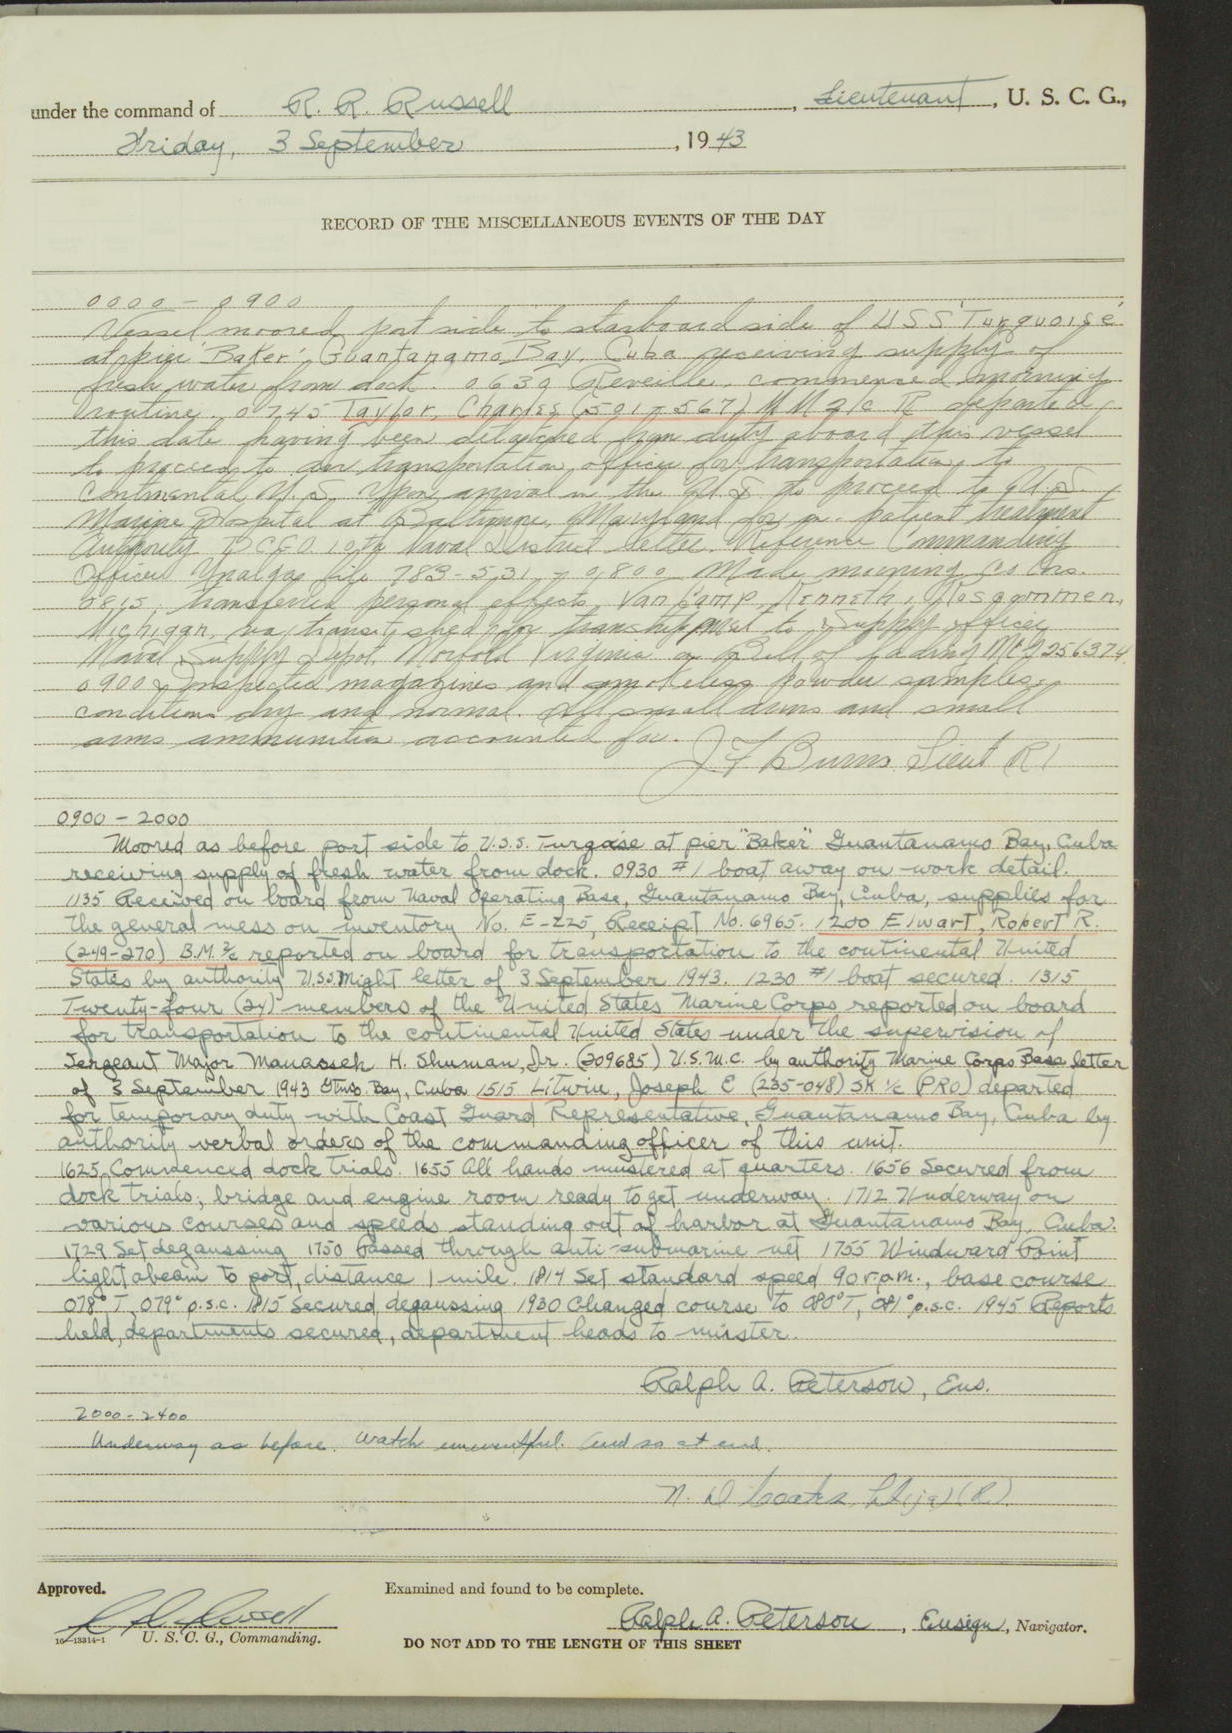 under the command of R. R. Russell, Lieutenant, U. S. C. G.,
Friday, 3 September, 1943
RECORD OF THE MISCELLANEOUS EVENTS OF THE DAY
0000 - 0900
Vessel moored port side to starboard side of USS 'Turquoise'
at pier 'Baker', Guantanamo Bay, Cuba receiving supply of
fresh water from dock. 0630 Reveille, commenced morning
routine. 0745 Taylor, Charles (591-567) MM 2/c R departed
this date having been detatched from duty aboard this vessel
to proceed to air transportation officer for transportation to
Continental U.S. Upon arrival in the U.S. to proceed to U.S.
Marine Hospital at Baltimore, Maryland for in-patient treatment
Authority DCGO 10th Naval District letter. Reference Commanding
Officer Unalga file 783-531 - 0800 Made morning colors.
0815, transferred personal effects Van Camp, Kenneth, Roscommen,
Michigan, via transit shed for transhipment to Supply officer
Naval Supply Depot, Norfolk Virginia on Bill of Lading
0900 Inspected magazines and smokeless powder samples,
conditions dry and normal. All small arms and small
arms ammunition accounted for.
J F Burns Lieut (R)
0900 - 2000
Moored as before port side to U.S.S. Turqoise at pier "Baker" Guantanamo Bay, Cuba
receiving supply of fresh water from dock. 0930 #1 boat away on work detail.
1135 Received on board from Naval Operating Base, Guantanamo Bay, Cuba, supplies for
the general mess on inventory No. E-225, Receipt No. 6965. 1200 Elwart, Robert R.
(249-270) B.M. 2/c reported on board for transportation to the continental United
States by authority U.S.S. Might letter of 3 September 1943. 1230 #1 boat secured. 1315
Twenty-four (24) members of the United States Marine Corps reported on board
for transportation to the continental United States under the supervision of
Sergeant Major Manassek H. Shuman, Jr. (209685) U.S.M.C. by authority Marine Corps Base letter
of 3 September 1943 Gtmo. Bay, Cuba 1515 Litwin, Joseph E (235-048) SK 1/c (PRO) departed
for temporary duty with Coast Guard Representative, Guantanamo Bay, Cuba by
authority verbal orders of the commanding officer of this unit.
1625 Commenced dock trials. 1655 All hands mustered at quarters. 1656 Secured from
dock trials; bridge and engine room ready to get underway. 1712 Underway on
various courses and speeds standing out of harbor at Guantanamo Bay, Cuba.
1729 Set degaussing 1750 Passed through anti-submarine net 1755 Windward Point
light abeam to port, distance 1 mile. 1814 Set standard speed 90 r.p.m., base course
078° T, 079° p.s.c. 1815 Secured degaussing 1930 Changed course to 080° T, 081° p.s.c. 1945 Reports
held, departments secured, department heads to muster.
Ralph A. Peterson, Ens.
2000 - 2400
Underway as before. Watch uneventful. And so at end.
N. D Lt(jg) (R)
Approved.
Examined and found to be complete.
R. R. Russell
Ralph A. Peterson, Ensign, Navigator.
16-13314-1 U. S. C. G., Commanding.
DO NOT ADD TO THE LENGTH OF THIS SHEET